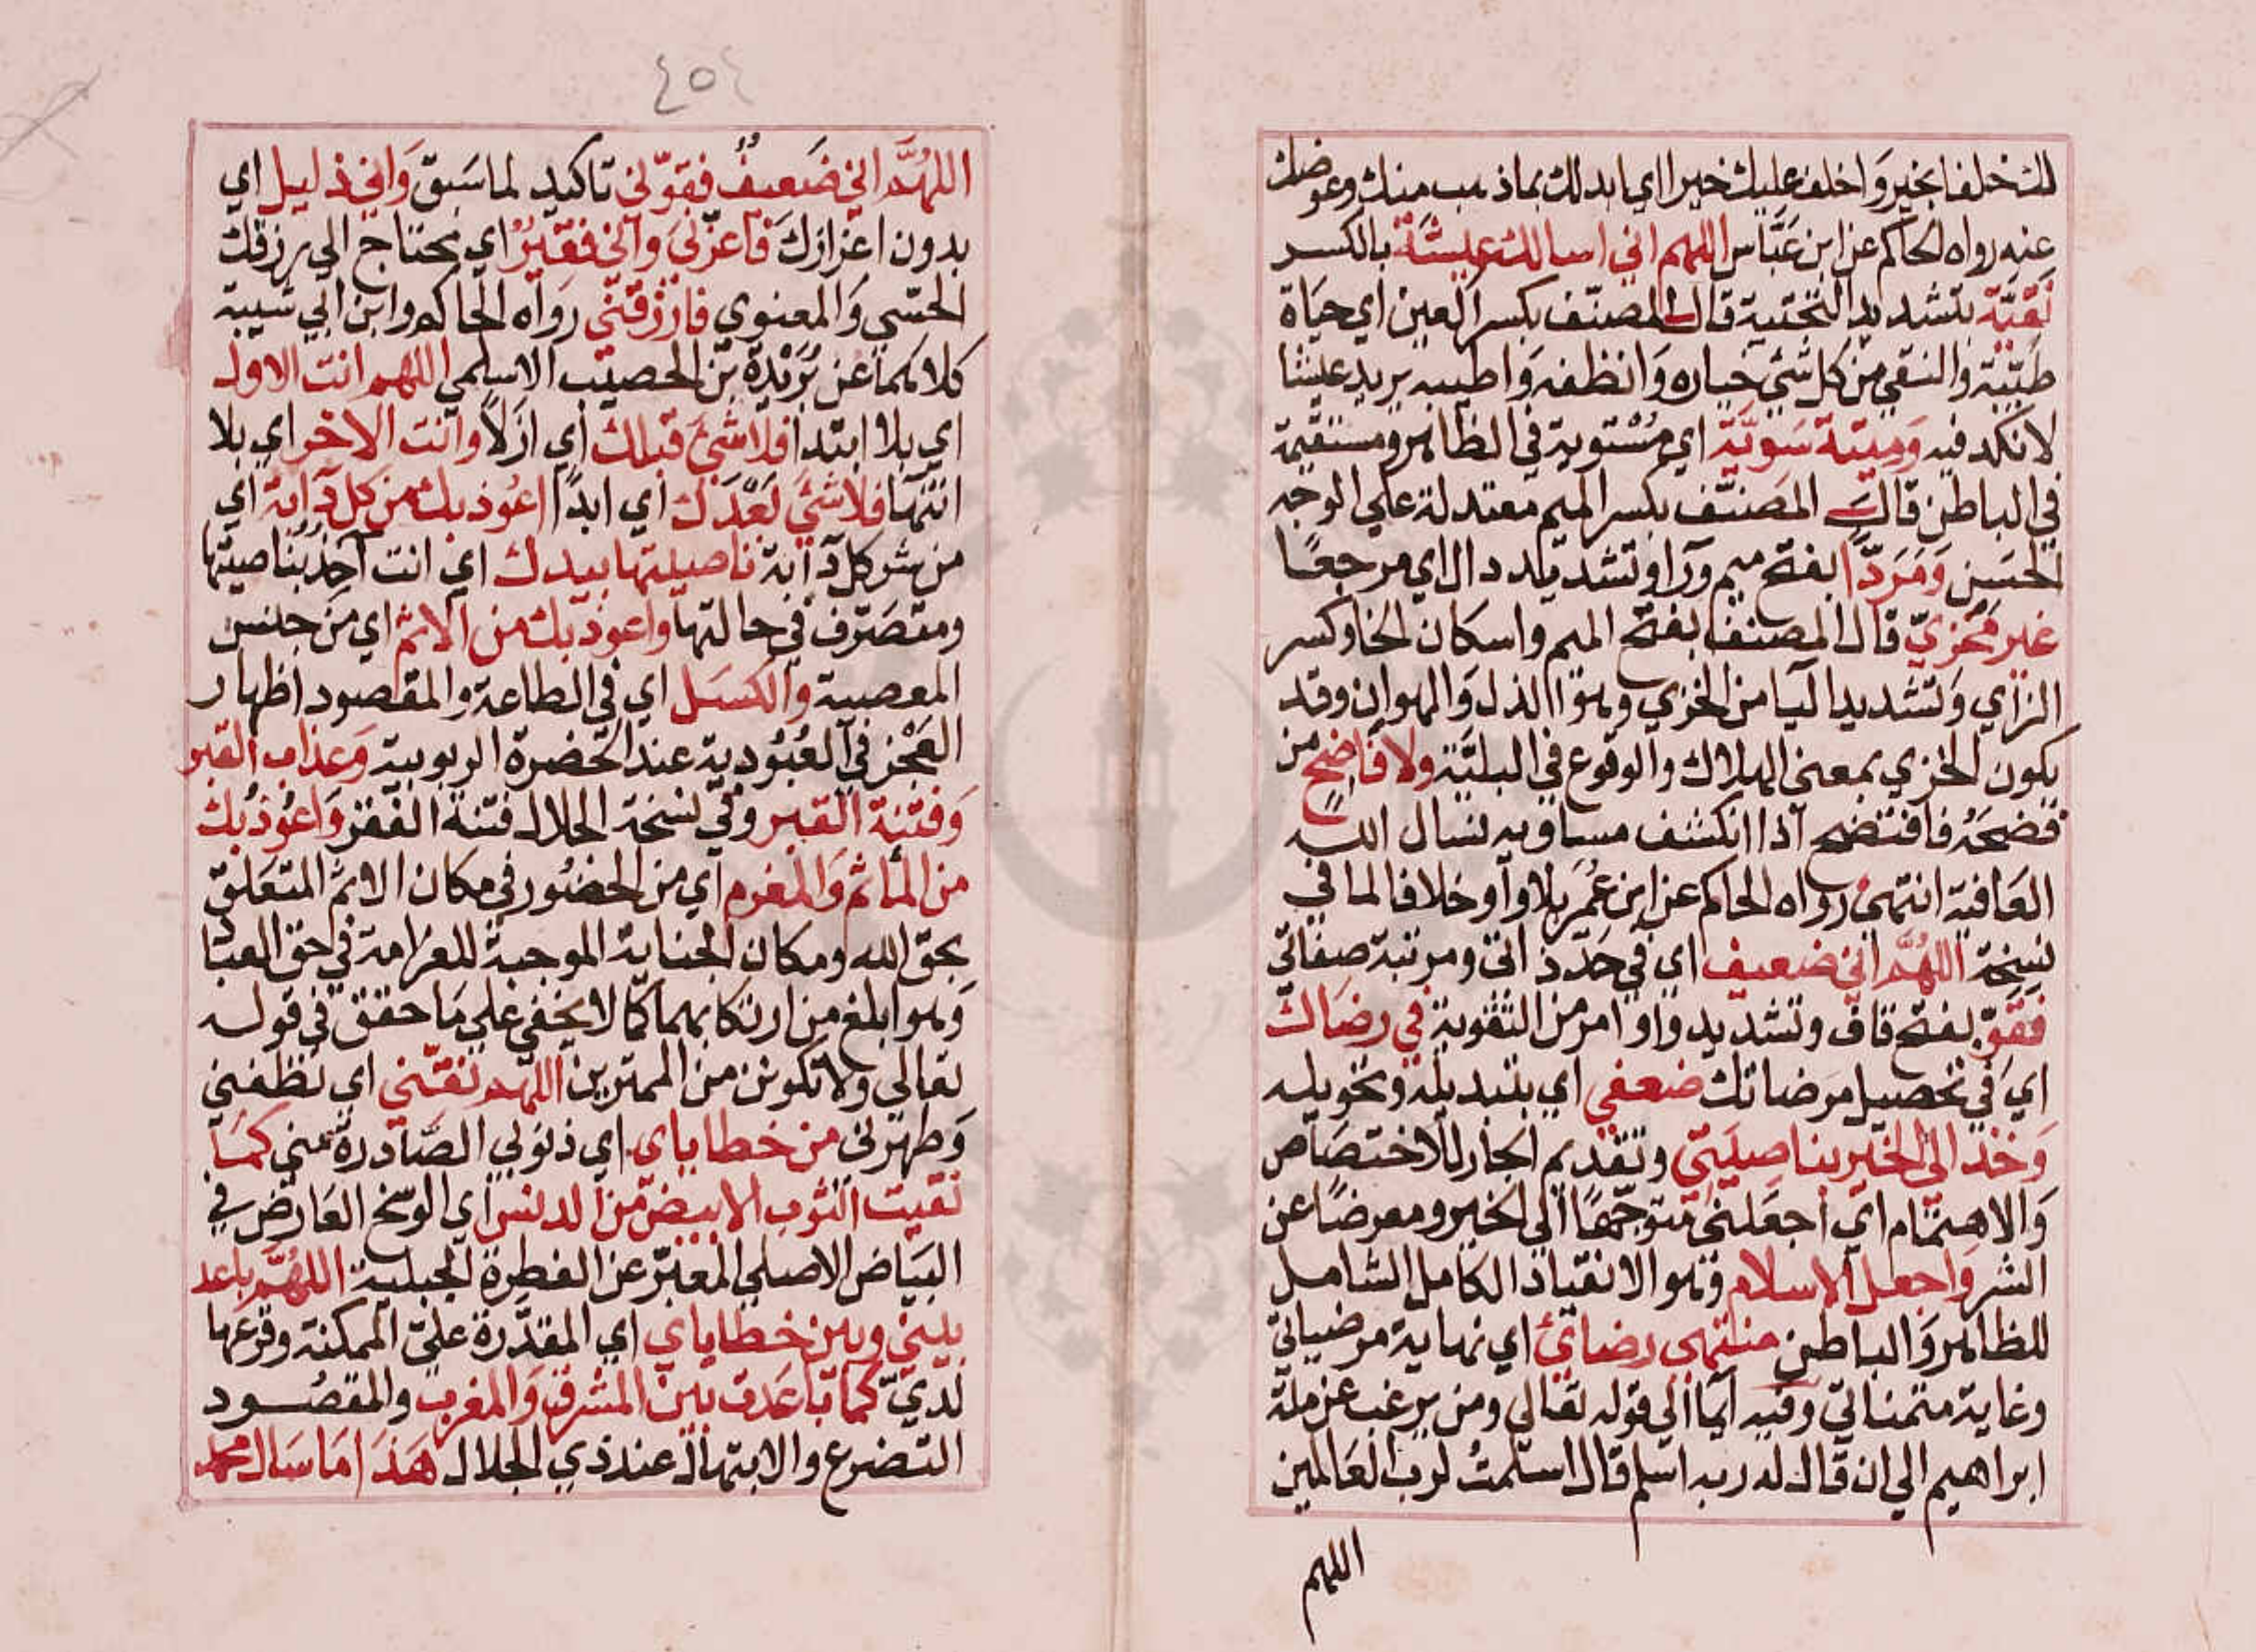 لك خلفا بخير وَاخلف عليك خيرا اي ابدلك بماذهب منك وعوضك
عنه رواه الحاكم عن ابن عَبَّاس اللهم اني اسالك عيشَةً بالكسر
نَقيَّة بتشديد التحتية قال المصنّف بكسر العين اي حيَاة
طيّبة والنقي من كل شئ خياره وَانظفه وَاطيبه يريد عيشا
لا نكد فيه وَميتة سَويَّةً اي مُسْتوية في الظاهر ومستقيمة
في الباطن قال المصَنّف بكسر الميم معتدلة علي الوجه
الحسَن وَمَردّا بفتح ميم ورآ وتشديد دال اي مرجعًا
غير مُخزيّ قال المصنف بفتح الميم واسكان الخا وكسر
الزاي وَتشديد اليا من الخزي وهوَ الذل وَالهوان وقد
يكون الخزي بمعني الهلاك والوقوع في البليَّة ولا فاضحٍ من
فضحَهُ فافتضح اذا انكشف مساويه نسال الله
العَافية انتهيٰ رواه الحاكم عن ابن عُمَر بلا واو خلافا لما في
نسخة اللهُمَّ اني ضعيف اي في حَدّ ذاتي ومرتبة صفاتي
فقوّ بفتح قاف وتشديد واو امر من التقوية في رضَاك
اي في تحصيل مرضاتك ضعفي اي بتبديله وتحويله
وَخذ الي الخير بناصيَتي وتقديم الجار للاختصَاص
وَالاهتمام اي اجعَلني متوجّهًا الي الخير ومعرضًا عن
الشر وَاجعل الاسلام وهو الانقياد الكامل الشامل
للظاهر وَالباطن منتهي رضائ اي نهاية مرضياتي
وغاية متمنياتي وفيه ايما الي قوله تعالي ومن يرغب عن ملة
ابراهيم الي ان قال له ربه اسلم قال اسلمتُ لرب العَالمين
اللهم
٤٥٤
اللهُمَّ اني ضَعيفٌ فقوّني تاكيد لما سَبَق وَاني ذليل اي
بدون اعزازكَ فاعزّني وَاني فقيرٌ اي محتاج الي رزقك
الحسّي وَالمعنوي فارزُقني رواه الحاكم وابن ابي شيبة
كلاهما عن بُرَيْدَة بن الحصيب الاسلمي اللهم انت الاول
اي بلا ابتدا فلا شئَ قبلك اي ازلاً وانت الاخر اي بلا
انتهَا فلا شئَ بَعْدَك اي ابدًا اعُوذ بك من كل دآبة اي
من شر كل دآبة ناصيتها بيدك اي انت آخِذٌ بناصيتها
ومتصَرّف في حالتها واعوذ بك من الاثم اي من جنس
المعصية وَالكسَل اي في الطاعة والمقصود اظهار
العَجْز في العُبُودية عند الحَضرة الربوبية وَعذاب القبر
وَفتنة القبر وفي نسخة الجلال فتنة الفقر وَاعوُذ بك
من المأثم وَالمغرم اي من الحضُور في مكان الاثم المتعَلق
بحق الله ومكان الجناية الموجبة للغرامة في حق العبَا
وَهو ابلغ من ارتكابهما كما لا يخفي علي مَا حقق في قوله
تعالي ولا تكونن من الممترين اللهم نقّني اي نَظفني
وَطهّرني من خطاياي اي ذنوبي الصَّادرة عني كمَا
نقيت الثوب الابيض من الدنس اي الوسَخ العَارض في
البيَاض الاصلي المعبّر عن الفطرة الجبلية اللهُمَّ باعد
بيني وبين خطاياي اي المقدّرة عليّ الممكنة وقوعها
لديّ كما باعَدت بين المشرق وَالمغرب والمقصُود
التضرع والابتهال عند ذي الجلال هَذا مَا سَال محمد